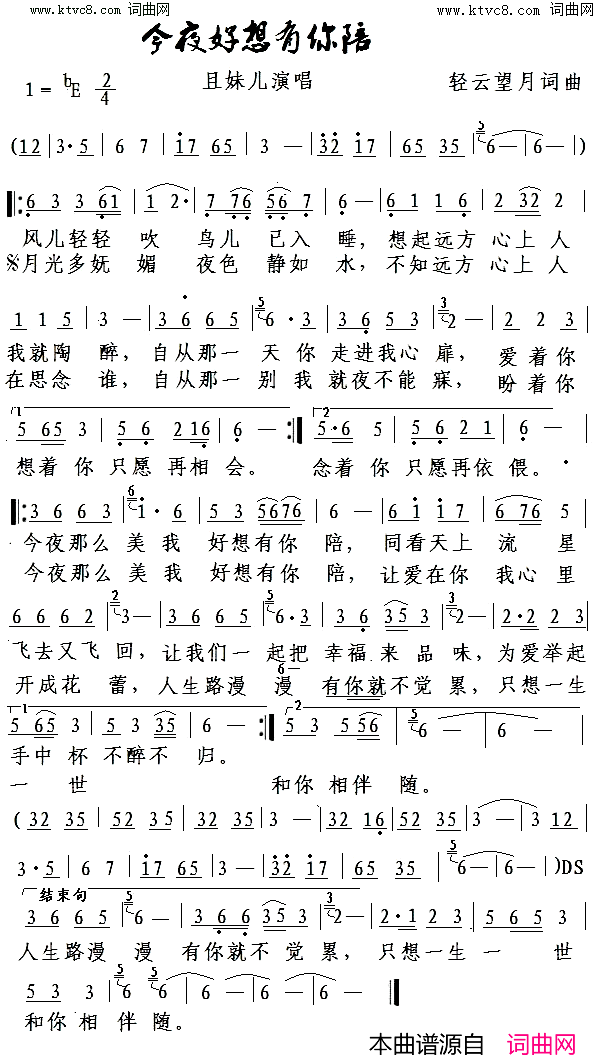 www.ktvc8.com 词曲网 www.ktvc8.com 词曲网
今夜好想有你陪
1=♭E 2/4 且妹儿演唱 轻云望月词曲
(12 | 3·5 | 6 7 | 17 65 | 3 — | 32 17 | 65 35 | 6— | 6— )
6 3 3 61 | 1 2· | 7 76 56 7 | 6 — | 6 1 1 6 | 2 32 2
风儿轻轻 吹 鸟儿 已入 睡，想起远方 心上 人
※月光多妩 媚 夜色 静如 水，不知远方 心上 人
1 1 5 | 3 — | 3 6 6 5 | 6 · 3 | 3 6 5 3 | 2— | 2 2 3
我就陶 醉，自从那一 天你 走进我心 扉， 爱着你
在思念 谁，自从那一 别我 就夜不能 寐， 盼着你
1 5 65 3 | 5 6 2 16 | 6 — 2 5·6 5 | 5 6 2 1 | 6 —
想着 你 只愿 再相 会。 念着 你 只愿再依 偎。
3 6 6 3 | 6 1· 6 | 5 3 5676 | 6 — | 6 1 17 | 6 76 5
今夜那么 美我 好想有你 陪， 同看天上 流 星
今夜那么 美我 好想有你 陪，让爱在你 我心 里
6 6 6 2 | 2 3— | 3 6 6 5 | 5 6·3 | 3 6 35 3 | 3 2— | 2·2 2 3
飞去又飞 回，让我们一 起把 幸福 来 品 味，为爱举起
开成花 蕾，人生路漫 漫 有你就不觉 累，只想一生
6—
1 5 65 3 | 5 3 35 | 6 — 2 5 3 5 56 | 5 6 — | 6 —
手中 杯 不醉不 归。
一 世 和你 相伴 随。
(32 35 | 52 35 | 32 35 | 3 — | 32 16 | 52 35 | 3 — | 3 12
3·5 | 6 7 | 17 65 | 3 — | 32 17 | 65 35 | 5 6— | 6— )DS
结束句
3 6 6 5 | 5 6 — | 3 6 6 35 3 | 3 2— | 2·1 2 2 | 5 65 3
人生路漫 漫 有你就不 觉 累，只想一生 一 世
5 3 3 | 5 6 — | 5 6 — | 6 — | 6 —
和你 相 伴 随。
本曲谱源自 词曲网